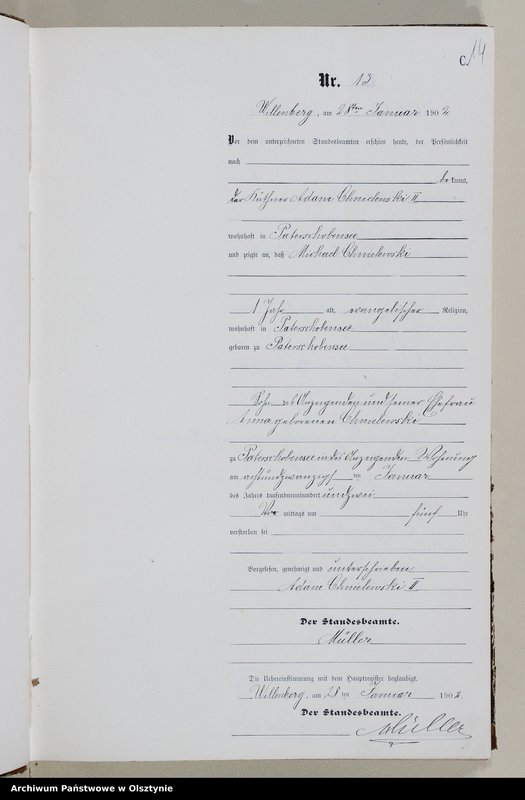 C. 14
Nr. 13
Willenberg, am 28ten Januar 1902
Vor dem unterzeichneten Standesbeamten erschien heute, der Persönlichkeit
nach
be kannt,
der Käthner Adam Chmelewski II
wohnhaft in Paterschobensee
und zeigte an, daß Michael Chmelewski
1 Jahr alt, evangelischer Religion,
wohnhaft in Paterschobensee
geboren zu Paterschobensee
Sohn des Anzeigenden und seiner Ehefrau
Anna geborenen Chmelewski
zu Paterschobensee in des Anzeigenden Wohnung
am achtundzwanzigsten Januar
des Jahres tausendneunhundert und zwei
Vor mittags um fünf Uhr
verstorben sei
Vorgelesen, genehmigt und unterschrieben
Adam Chmelewski II
Der Standesbeamte.
Müller
Die Uebereinstimmung mit dem Hauptregister beglaubigt.
Willenberg, am 28ten Januar 1902
Der Standesbeamte.
Müller
Archiwum Państwowe w Olsztynie